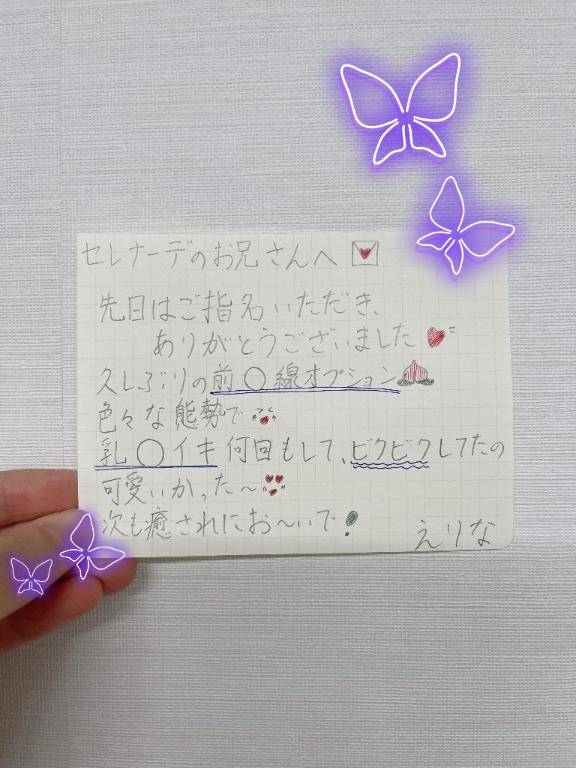 セレナーデのお兄さんへ
先日はご指名いただき、
ありがとうございました
久しぶりの前〇線オプション
色々な態勢で
乳〇イキ何回もして、ビクビクしてたの
可愛いかった〜
次も癒されにお〜いで
えりな